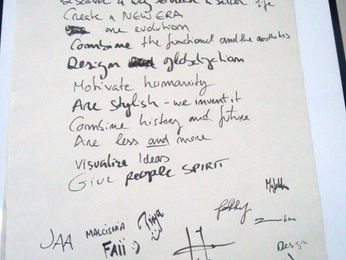 Create a NEW ERA
are evolution
Combine the functional and the aesthetics
Design globalytism
Motivate humanity
Are stylish - we invent it
Combine history and future
Are less and more
Visualize Ideas
Give people SPIRIT
JAA
MALCISHIA
FAII :)
Tinja
Design